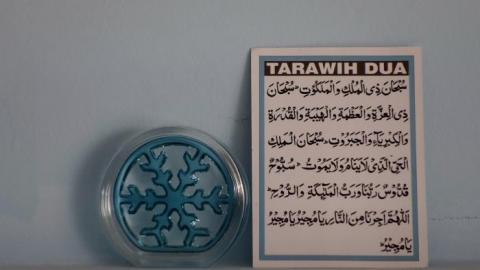 TARAWIH DUA
سُبْحَانَ ذِی الْمُلْكِ وَالْمَلَكُوْتِ ؕ سُبْحَانَ
ذِی الْعِزَّةِ وَالْعَظَمَةِ وَالْهَيْبَةِ وَالْقُدْرَةِ
وَالْكِبْرِيَآءِ وَالْجَبَرُوْتِ ؕ سُبْحَانَ الْمَلِكِ
الْحَیِّ الَّذِیْ لَا يَنَامُ وَلَا يَمُوْتُ ؕ سُبُّوْحٌ
قُدُّوْسٌ رَبُّنَا وَرَبُّ الْمَلٰٓئِكَةِ وَالرُّوْحِ ؕ
اَللّٰهُمَّ اَجِرْنَا مِنَ النَّارِ يَا مُجِيْرُ يَا مُجِيْرُ
يَا مُجِيْرُ ؕ